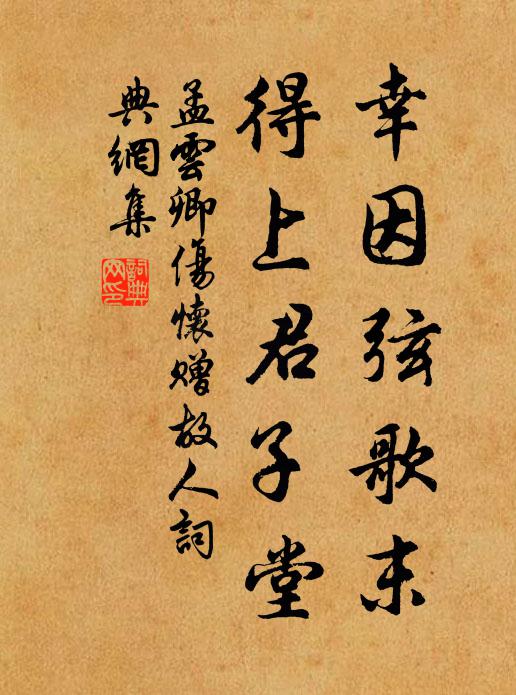 幸因弦歌末
得上君子堂
孟雲卿傷懷贈故人詞
典網集
詞典
网印